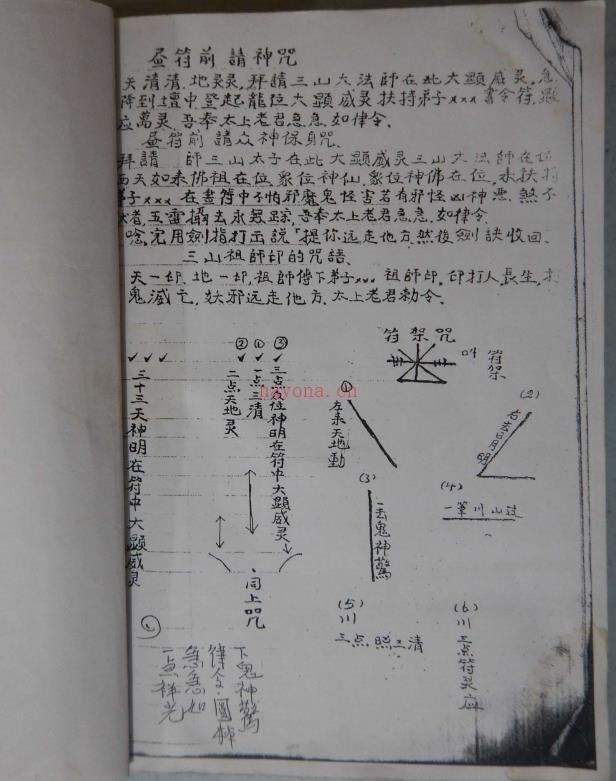 昼符前請神咒
天清清.地灵灵,拜請三山大法師在此大顕威灵.急
降到壇中登起龍位大顕威灵扶持弟子xxx書令符,
应萬灵.吾奉太上老君急急.如律令.
昼符前請众神保身咒.
拜請 師三山太子在此大顕威灵三山大法師在位
西天如来佛祖在位.象位神仙.象位神佛在位.来扶持
弟子xxx在畫符中不怕邪魔鬼怪害若有邪怪凶神悪煞不
者,五雷攝去永無踪.吾奉太上老君急急.如律令.
唸完用劍指打出説「提你远走他方.然後劍訣收回.
三山祖師印的咒語.
天一印.地一印,祖師傳下弟子xxx祖師印.印打人長生,打
鬼滅亡,妖邪远走他方.太上老君勅令.
符架咒
叫符架
(1)
左耒天地動
(2)
右去日月明
(3)
一去鬼神驚
(4)
一筆川山过
(5)
川
三点照三清
(6)
川
三点符灵应
③
三点众位神明在符中大顕威灵
①
一点三清
②
二点天地灵
三十三天神明在符中大顕威灵
同上咒
下鬼神驚
律令.圓
急急如
一点祥光
nayona.cn